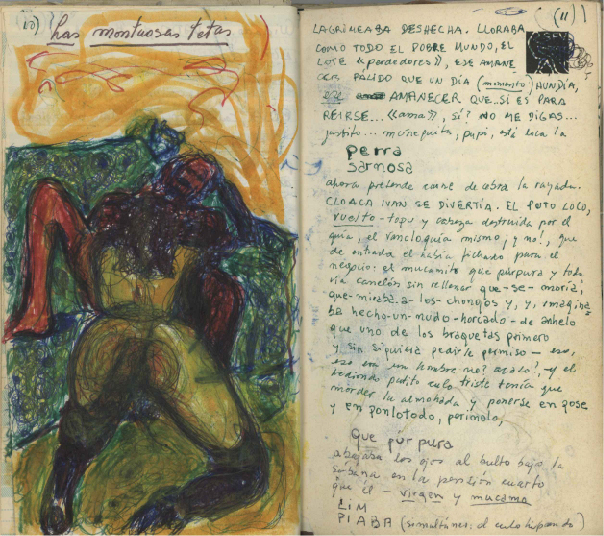 10) Las montuosas tetas
(11)
LAGRIMEABA DESHECHA. LLORABA
COMO TODO EL POBRE MUNDO, EL
LOTE «paradores», ESE AMANE
CER PÁLIDO QUE UN DÍA (momento) HUNDÍA,
AMANECER QUE.. SÍ ES PARA
REIRSE... «ama», SÍ? NO ME DIGAS...
justito... muñequita, pupi, está loca la
perra
sarnosa
ahora pretende carne de cabra la rayada.
CLOACA IVAN SE DIVERTÍA. EL PUTO LOCO,
vuesto-topu y cabeza destruida por el
guía, el mismo, y no!, que
de entrada el había fichado para el
negocio: el mucamito que púrpura y toda
vía canelón sin rellenar que-se-moría,
que-miraba-a-los-chongos y, y, imagina
ba hecho-un-nudo-horcado-de anhelo
que uno de los braguetas primero
y sin siquiera pedirle permiso - eso,
eso era un hombre no? ¡ -y el
redondo pudito culo triste tenía que
morder la almohada y ponerse en pose
y en ponlotodo, perimolo,
que púrpura
abajaba los ojos al bulto bajo la
sábana en la pensión cuarto
que él - virgen y mucama
LIM
PIABA (simultáneo: el culo)